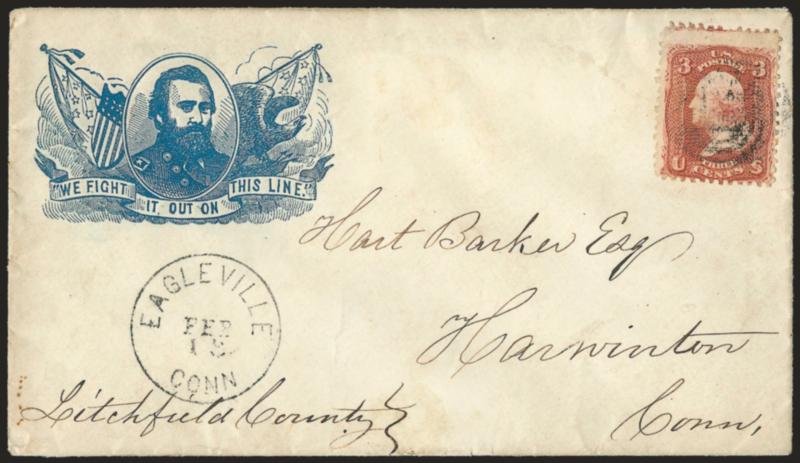 "WE FIGHT
IT OUT ON
THIS LINE."
3 U.S. 3
POSTAGE
THREE
U CENTS S
Hart Barker Esq
Harwinton
EAGLEVILLE
FEB
CONN
Litchfield County
Conn,